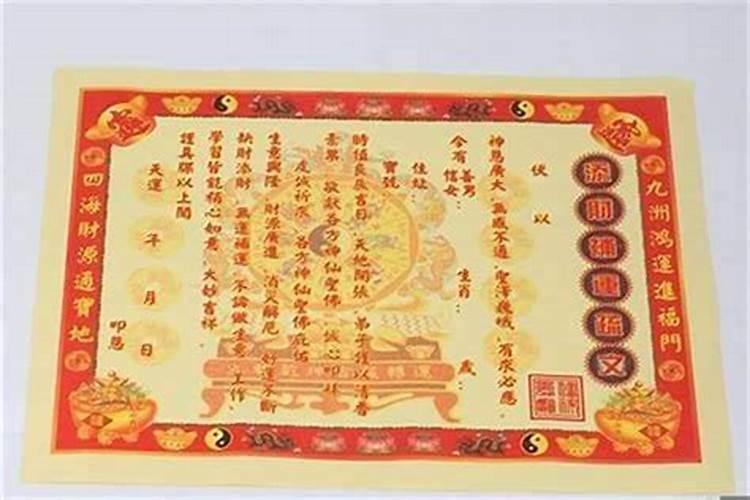 九洲鴻運進福門
添財補運疏文
伏以
神恩廣大 無感不通 聖澤巍峨 有求必應
今有 善男 信女： 生肖： 歲：
住址：
寶號
時值良辰吉日 天地開張 弟子僅以清香
素果 敬獻各方神仙聖佛 誠心叩拜
虔誠祈求 各方神仙聖佛庇佑
生意興隆 財源廣進 消災解厄 好運不斷
缺財添財 無運補運 不論做生意、工作、
學習皆能稱心如意 大妙吉祥。
具 以上聞
天運 年 月 日
叩懇
四海財源通寶地